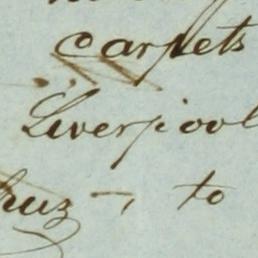 carpets
Liverpool
Cruz -, to